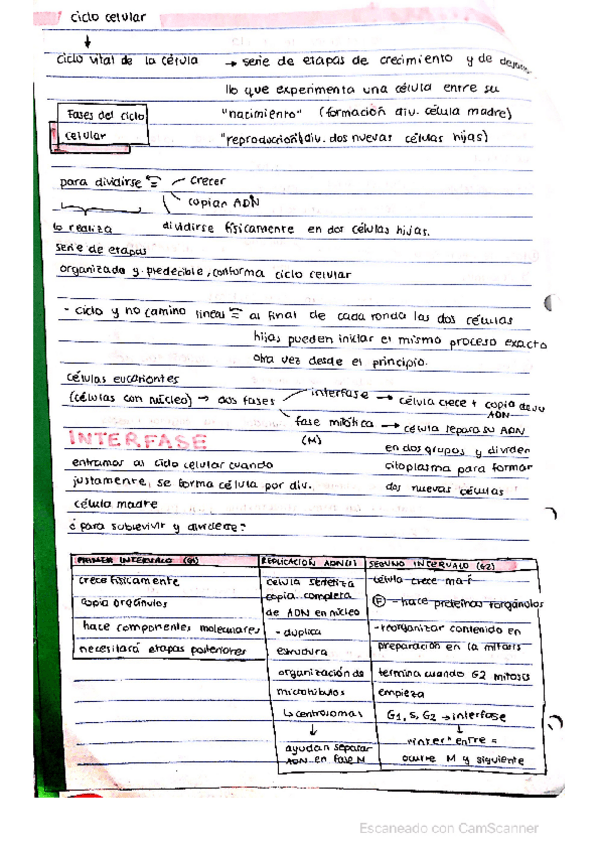 ciclo celular
ciclo vital de la célula → serie de etapas de crecimiento y de desarro
llo que experimenta una célula entre su
Fases del ciclo
celular
"nacimiento" (formación div. célula madre)
"reproducción" (div. dos nuevas células hijas)
para dividirse
crecer
copian ADN
dividirse físicamente en dos células hijas.
lo realiza
serie de etapas
organizada y predecible, conforma ciclo celular
- ciclo y no camino lineas = al final de cada ronda las dos células
hijas pueden iniciar el mismo proceso exacto
otra vez desde el principio.
células eucariontes
(células con núcleo) → dos fases
interfase → célula crece + copia de su
ADN
fase mitótica → célula separa su ADN
(M)
en dos grupos y dividen
citoplasma para formar
dos nuevas células
INTERFASE
entramos al ciclo celular cuando
justamente, se forma célula por div.
célula madre
¿para sobrevivir y dividerse?
PRIMER INTERVALO (G1)
crece físicamente
copia orgánulos
hace componentes moleculares
necesitará etapas posteriores
REPLICACION ADN(S)
célula sintetiza
copia completa
de ADN en núcleo
- duplica
estructura
organización de
microtúbulos
↳ centrosomas
↓
ayudan separar
ADN en fase M
SEGUNO INTERVALO (G2)
célula crece más
- hace proteínas y orgánulos
- reorganizar contenido en
preparación en la mitosis
termina cuando G2 mitosis
empieza
G1, S, G2 → interfase
↓
"inter" entre =
ocurre M y siguiente
Escaneado con CamScanner